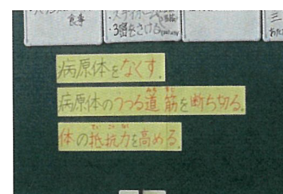 食事
3密をさける
病原体をなくす。
病原体のうつる道筋を断ち切る。
体の抵抗力を高める。